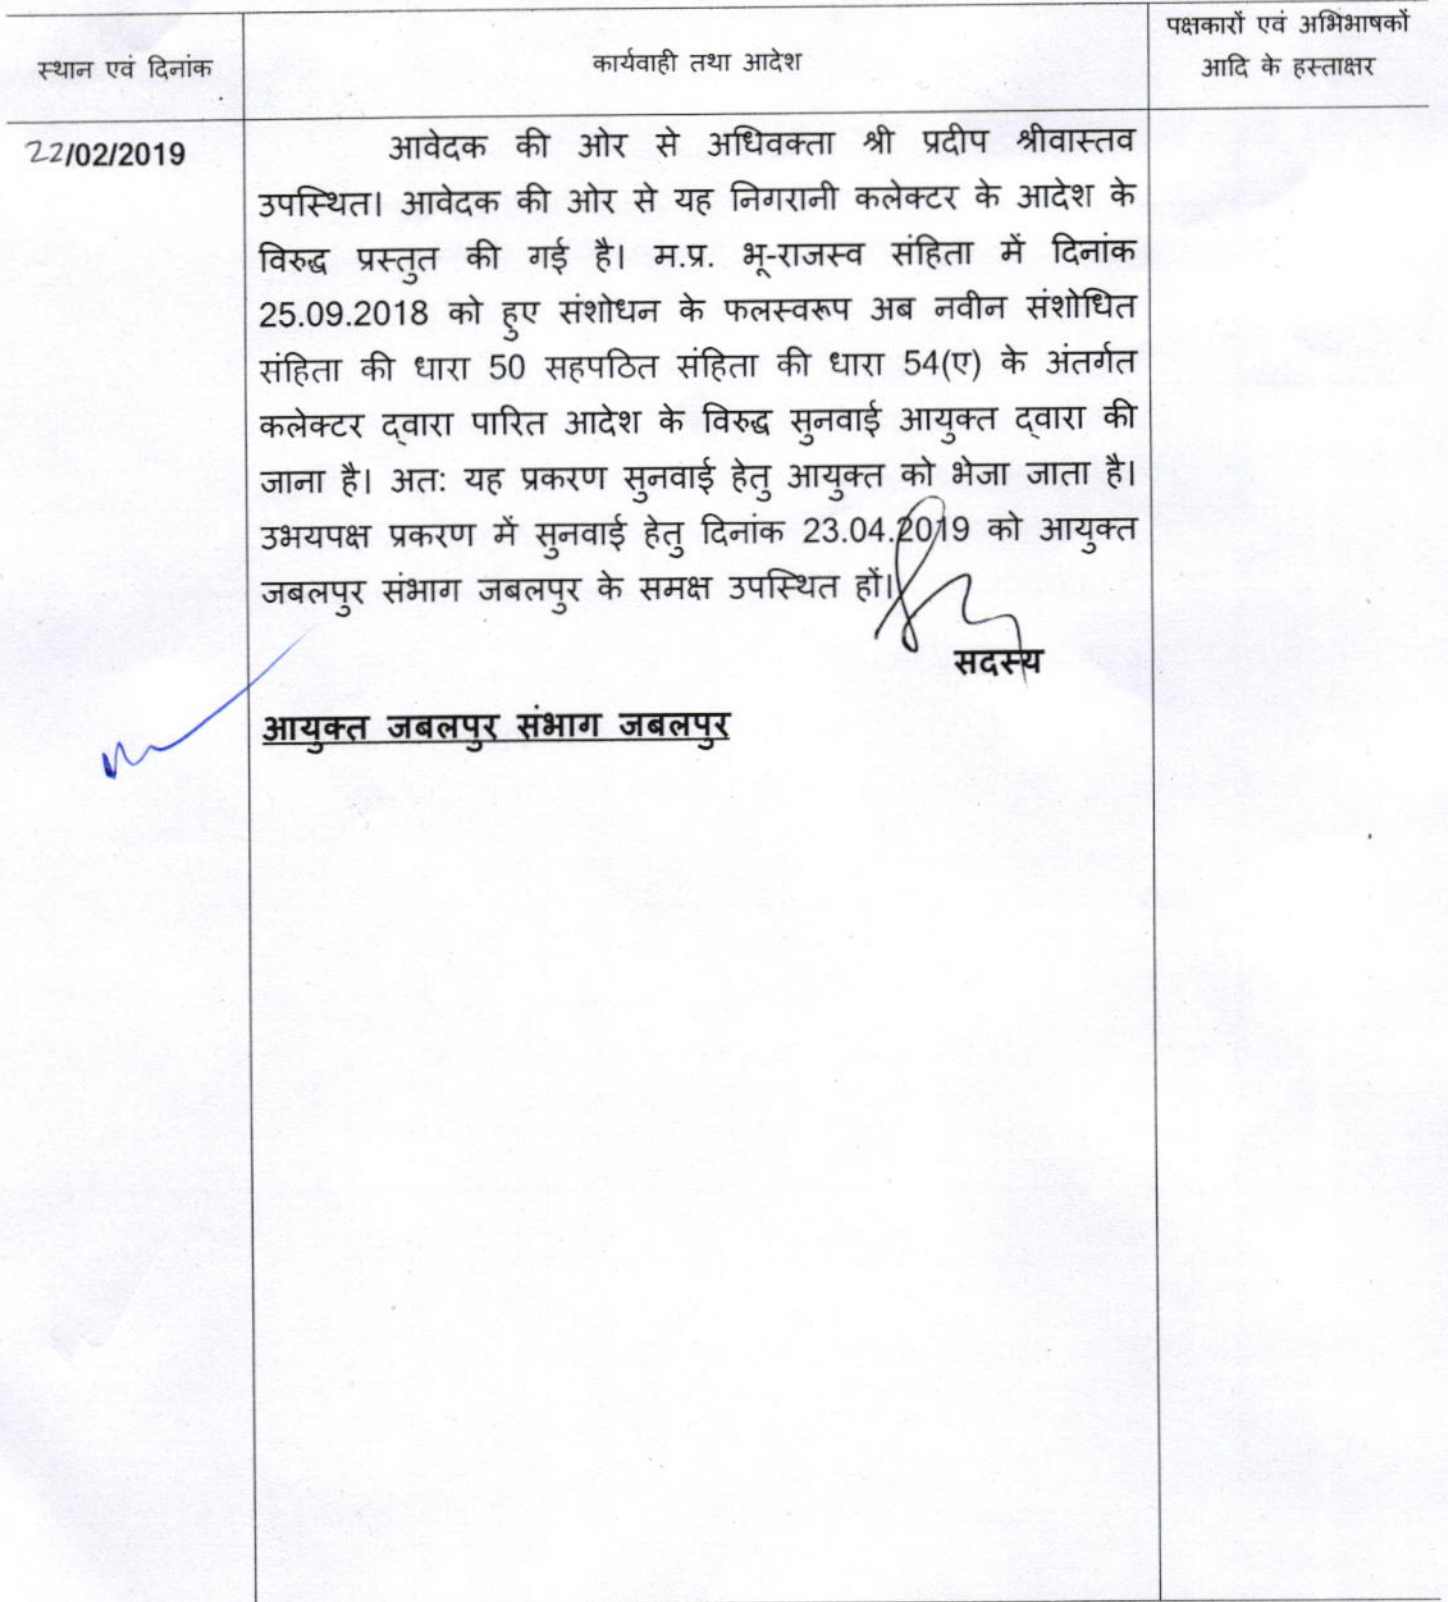 स्थान एवं दिनांक
कार्यवाही तथा आदेश
पक्षकारों एवं अभिभाषकों
आदि के हस्ताक्षर
22/02/2019
आवेदक की ओर से अधिवक्ता श्री प्रदीप श्रीवास्तव
उपस्थित। आवेदक की ओर से यह निगरानी कलेक्टर के आदेश के
विरुद्ध प्रस्तुत की गई है। म.प्र. भू-राजस्व संहिता में दिनांक
25.09.2018 को हुए संशोधन के फलस्वरूप अब नवीन संशोधित
संहिता की धारा 50 सहपठित संहिता की धारा 54(ए) के अंतर्गत
कलेक्टर द्वारा पारित आदेश के विरुद्ध सुनवाई आयुक्त द्वारा की
जाना है। अतः यह प्रकरण सुनवाई हेतु आयुक्त को भेजा जाता है।
उभयपक्ष प्रकरण में सुनवाई हेतु दिनांक 23.04.2019 को आयुक्त
जबलपुर संभाग जबलपुर के समक्ष उपस्थित हों।
सदस्य
आयुक्त जबलपुर संभाग जबलपुर